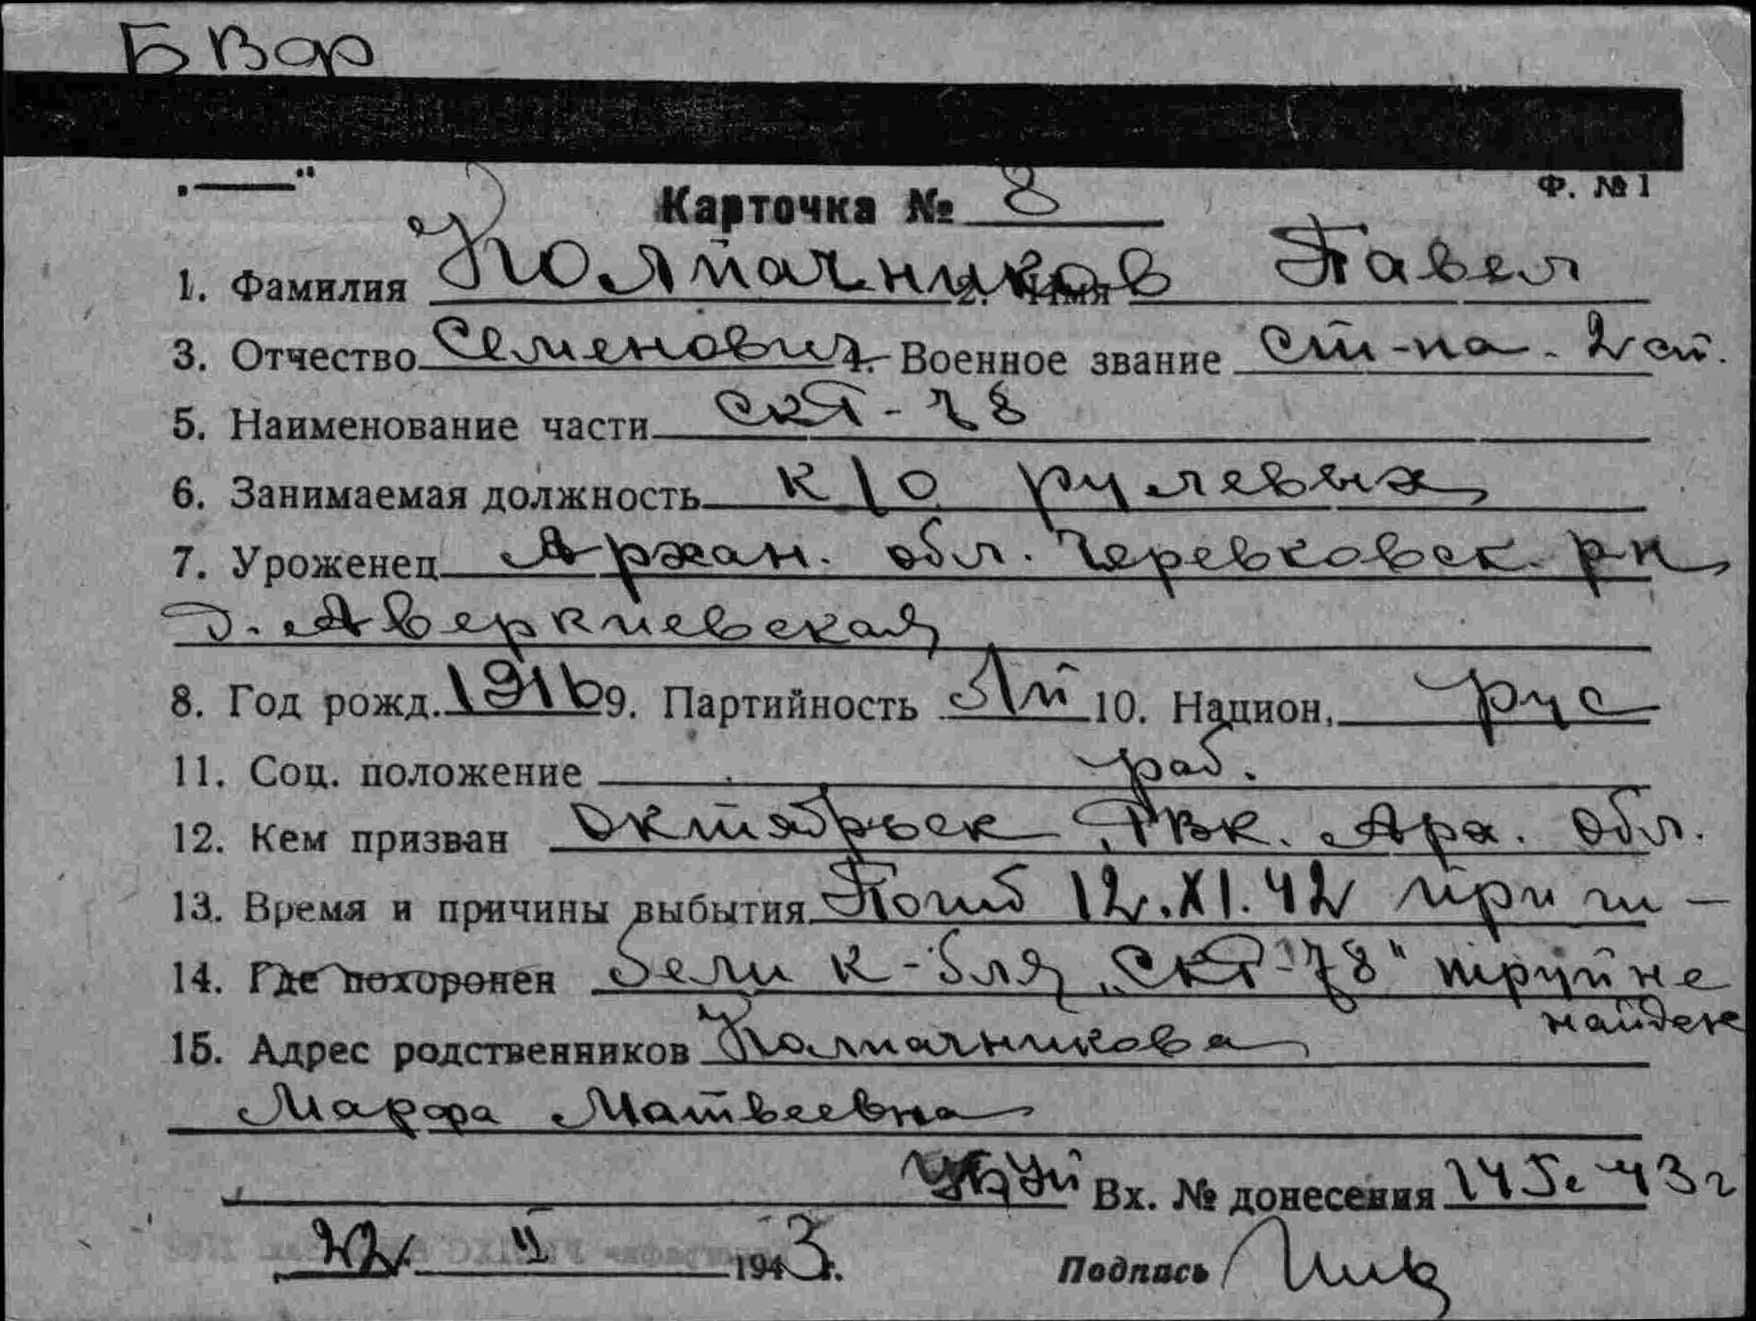 Б Вор
"——" Ф. № 1
Карточка № 8
1. Фамилия Колпачников 2. Имя Павел
3. Отчество Семенович 4. Военное звание ст-на 2 ст.
5. Наименование части СКР-78
6. Занимаемая должность к/о рулевых
7. Уроженец Архан. обл. Черевковск. р-н
д. Аверкиевская
8. Год рожд. 1916 9. Партийность 10. Национ. рус
11. Соц. положение раб.
12. Кем призван Октябрьск РВК. Арх. обл.
13. Время и причины выбытия Погиб 12.XI.42 при ги-
14. Где похоронен бели к-бля "СКР-78" труп не
найден
15. Адрес родственников Колпачникова
Марфа Матвеевна
Вх. № донесения 145с 43г
22 II 1943 г. Подпись